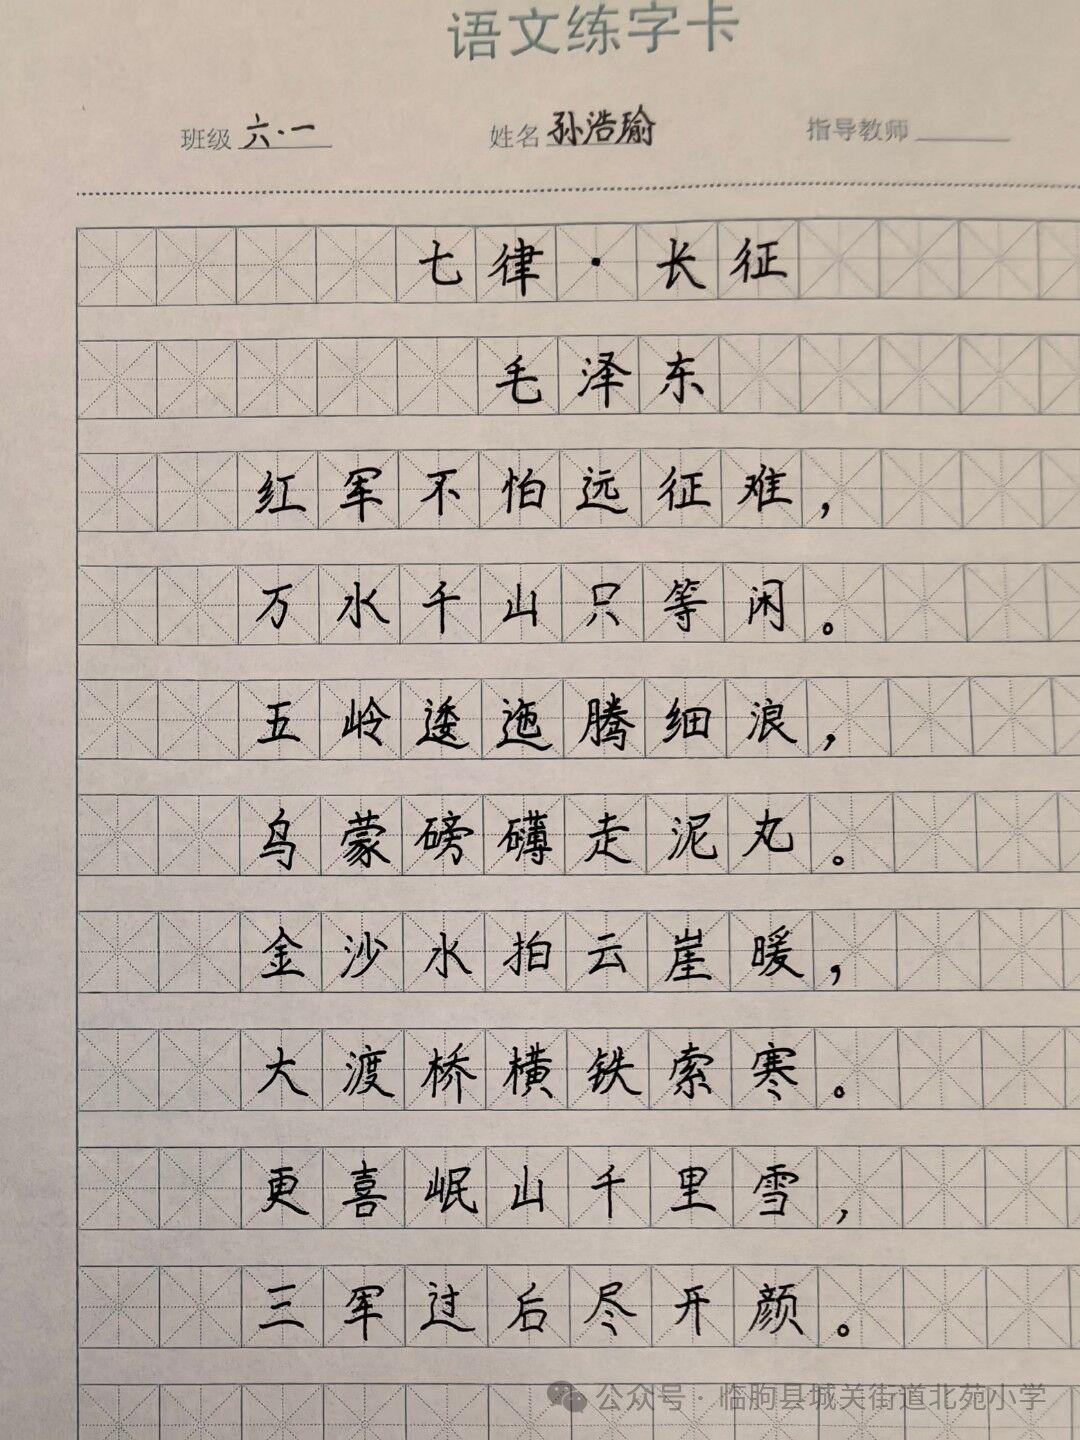 语文练字卡
班级 六·一 姓名 孙浩瑜 指导教师
七律·长征
毛泽东
红军不怕远征难，
万水千山只等闲。
五岭逶迤腾细浪，
乌蒙磅礴走泥丸。
金沙水拍云崖暖，
大渡桥横铁索寒。
更喜岷山千里雪，
三军过后尽开颜。
公众号·临朐县城关街道北苑小学